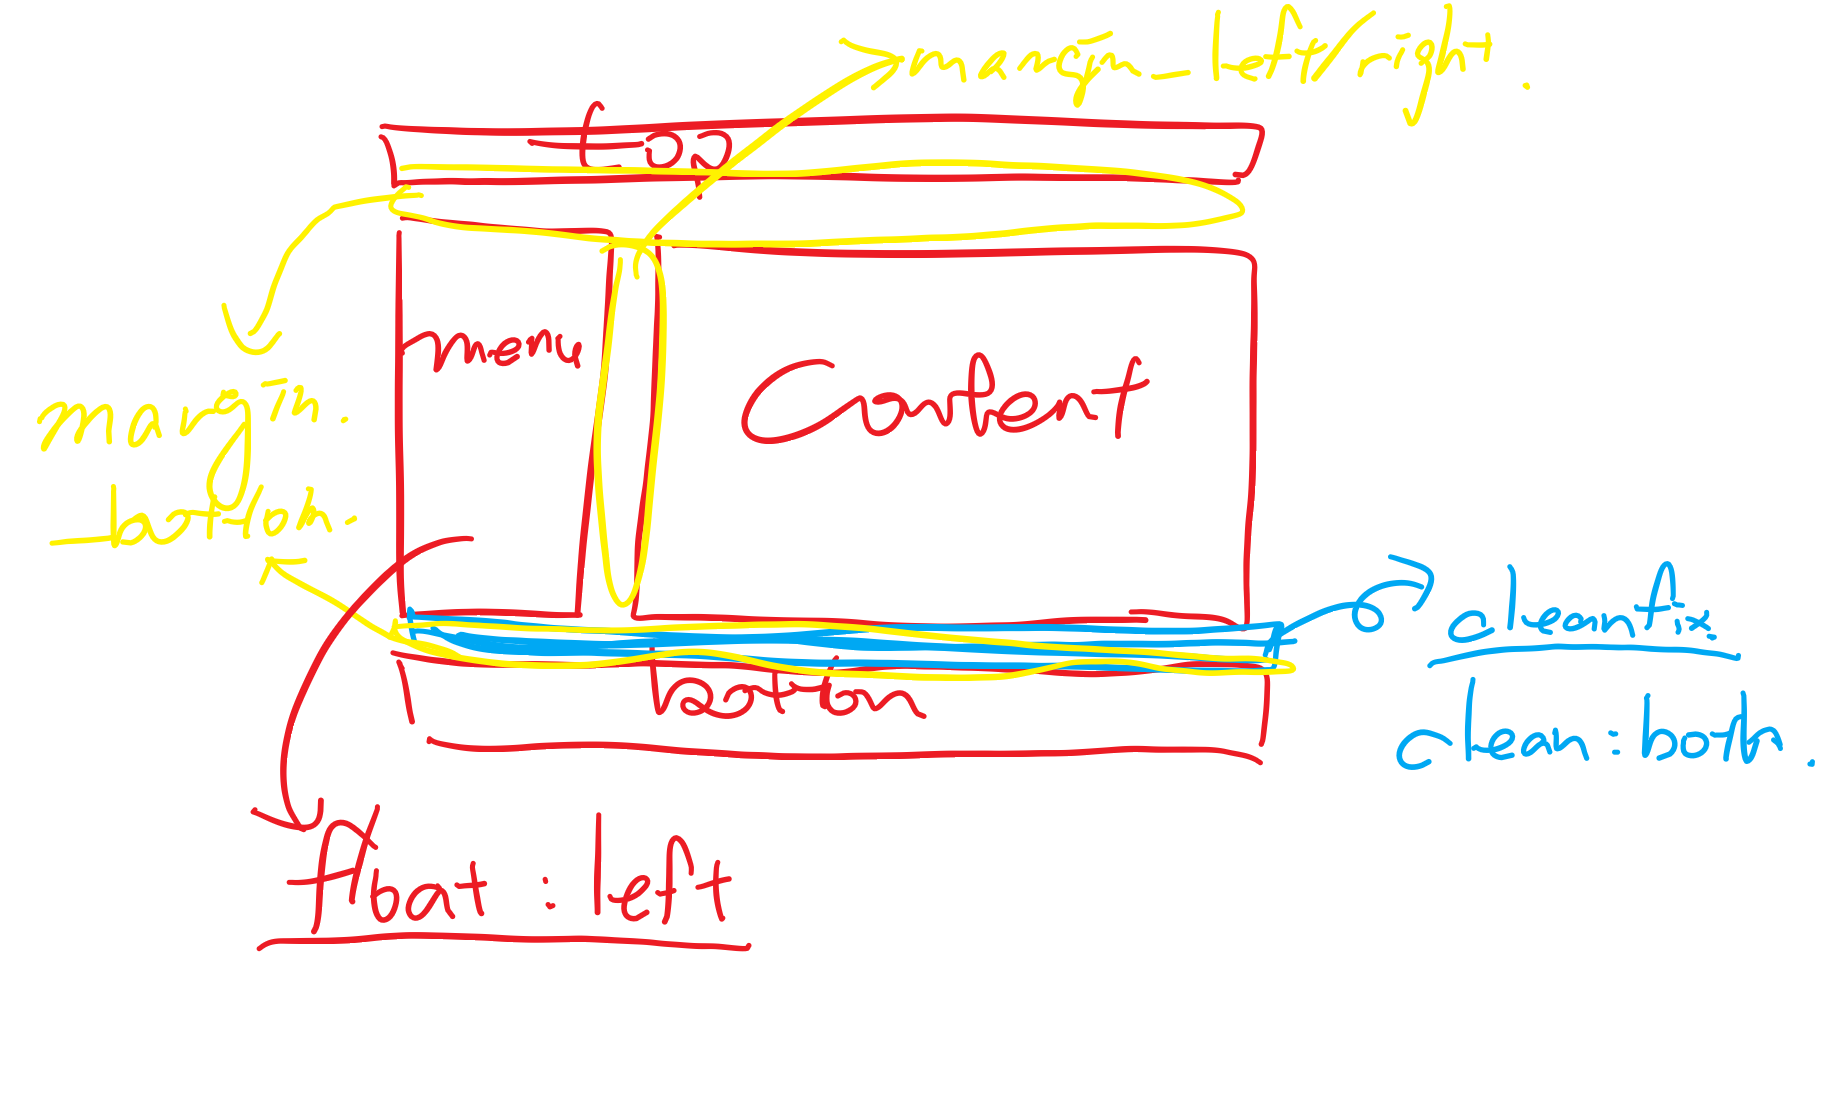 margin_left/right.
top
menu
Content
margin.
_bottom.
clearfix
clear:both.
bottom
float:left